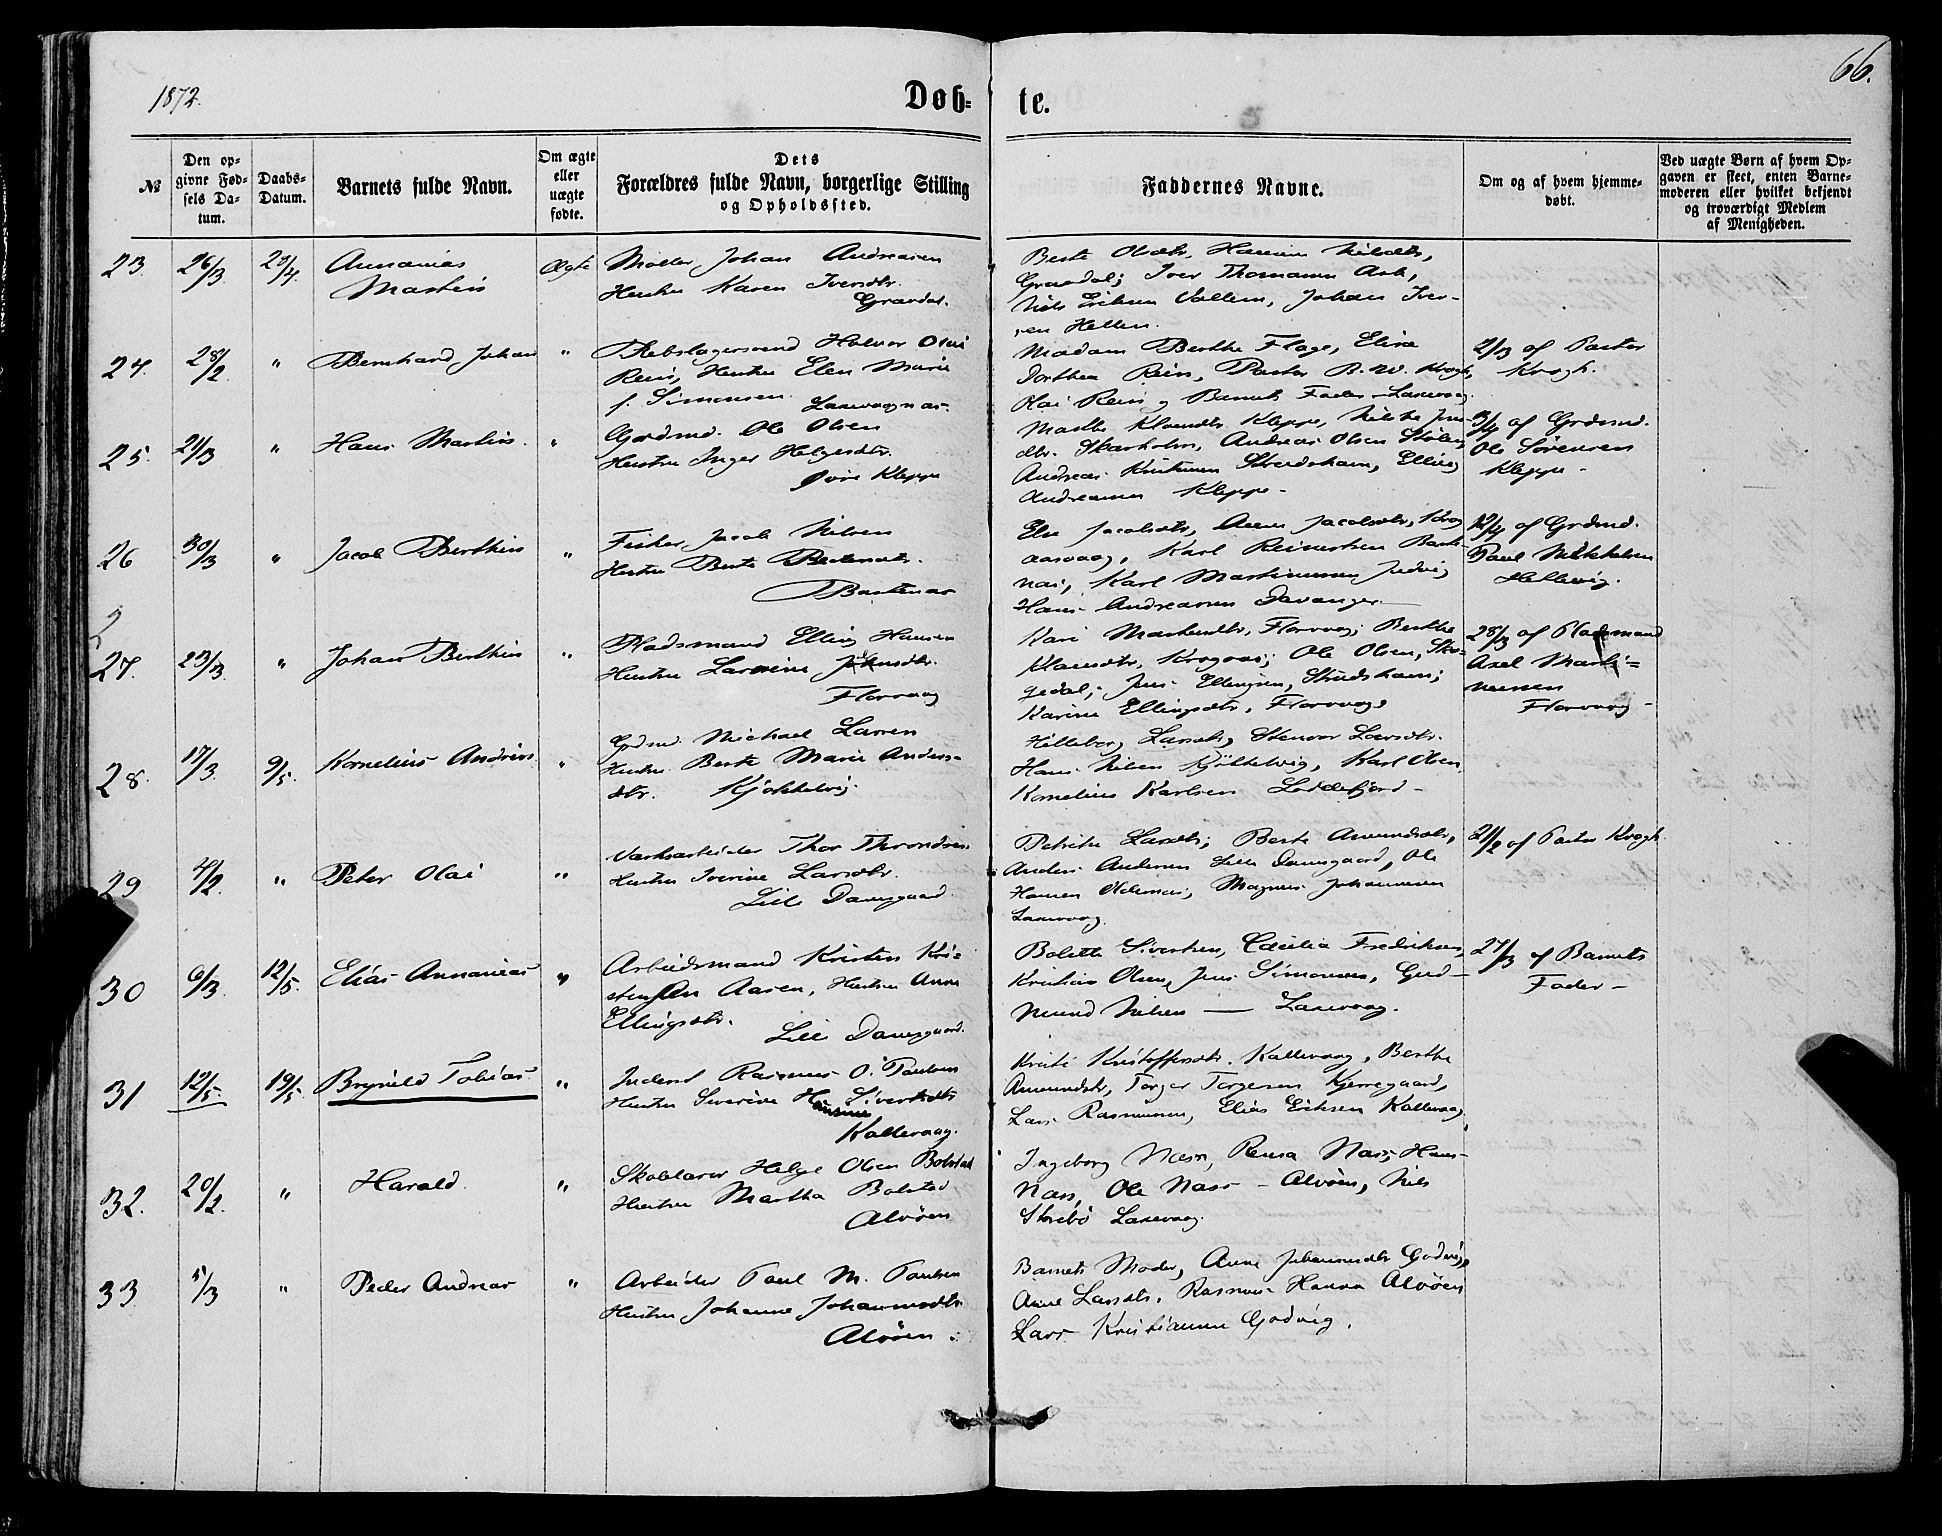 1872.
Døb-
te.
66.
№
Den op-
givne Fød-
sels Da-
tum.
Daabs-
Datum.
Barnets fulde Navn.
Om ægte
eller
uægte
fødte.
Dets
Forældres fulde Navn, borgerlige Stilling
og Opholdssted.
Faddernes Navne.
Om og af hvem hjemme-
døbt.
Ved uægte Børn af hvem Op-
gaven er skeet, enten Barne-
moderen eller hvilket bekjendt
og troværdigt Medlem
af Menigheden.
23. 26/3 Annanias
Martin
Ægte
Møller Johan Andreasen
Hustru Karen Iversdtr.
Gravdal.
Berte Olsdtr, Nilsdtr,
Gravdal; Iver Thomassen Ask,
Nils Eriksen Vallem, Johan Iver-
sen Hellen.
24. 28/2 " Bernhard Johan "
Rebslagersvend Halvor Olai
Rein, Hustru Elen Marie
f. Simonsen
Laxevaagnæs.
Madam Berthe Flage, Elise
Dorthea Rein, Pastor Krogh,
Olai Rein og Barnets Fader - Laxevaag.
2/3 af Pastor
Krogh.
25. 21/3 " Hans Martin "
Grdmd. Ole Olsen
Hustru Inger Helgesdtr.
øvre Kleppe
Marthe Kleppe,
dtr. Skarholm, Andreas Olsen
Andreas Strudshavn, Elling
Andreassen Kleppe -
3/4 af Grdmd.
Ole Sørensen
Kleppe -
26 30/3 " Jacob Berthin "
Fisker Jacob Nilsen
Hustru Berte
Bartenæs
Jacobsdtr, Anne Jacobsdtr, Krog
aasvaag, Karl Reinertsen Bart-
næs, Karl Martinussen
Hans Andreassen Davanger
12/4 af Grdmd.
Paul Mikkelsen
Hellevig.
27. 23/3 " Johan Berthin "
Pladsmand Elling Hansen
Hustru
Florvaag
Kari Florvaag; Berthe
Krogaas; Ole Olsen, Sko-
gedal; Jens Ellingsen, Strudshavn;
Karine Ellingsdtr, Florvaag
28/3 af Pladsmand
Axel Marti=
nussen
Florvaag -
28. 17/3 9/5. Kornelius Andreas "
Grdmd. Michael Larsen
Hustru Berte Marie Anders-
dtr. Kjøkkelvig.
Hilleborg Larsdtr, Steuvor Larsdtr.
Hans Nilsen Kjøkkelvig, Karl Olsen,
Kornelius Karlsen Loddefjord -
29 4/2. " Peter Olai "
Værksarbeider Thor Throndsen
Hustru Iverine Larsdtr.
Lille Damsgaard
Petrike Larsdtr, Berte Amundsdtr,
Anders Andersen Lille Damsgaard, Ole
Hansen Magnus Johannesen
Laxevaag.
21/2 af Pastor Krogh
30 6/3. 12/5. Elias Annanias "
Arbeidsmand Kristen Kri-
stensen Aasen, Hustru Anne
Ellingsdtr.
Lille Damsgaard.
Bolette Sivertsen, Cæcilia Fredriksen,
Kristian Olsen, Jens Simonsen, Gud-
mund Nilsen — Laxevaag.
27/3 af Barnets
Fader -
31 12/5. 19/5. Brynild Tobias "
Inderst Rasmus O. Paulsen
Hustru Severine Sivertsdtr
Kallevaag.
Kristi Kristoffersdtr. Kallevaag, Berthe
Amundsdtr, Torger Torgersen Kjerregaard,
Lars Rasmussen, Elias Eriksen Kallevaag.
32. 20/2. " Harald. "
Skolelærer Helge Olsen Bolstad
Hustru Martha Bolstad
Alvøen
Ingeborg Næss, Rensa Næss, Hans
Næss, Ole Næss - Alvøen, Nils
Storebø Laxevaag.
33 5/3 " Peder Andreas "
Arbeider Paul M. Paulsen
Hustru Johanne Johannesdtr
Alvøen.
Barnets Moder, Anne Johannesdtr Godvig,
Anne Larsdtr, Rasmus Hansen Alvøen
Lars Kristiansen Godvig.